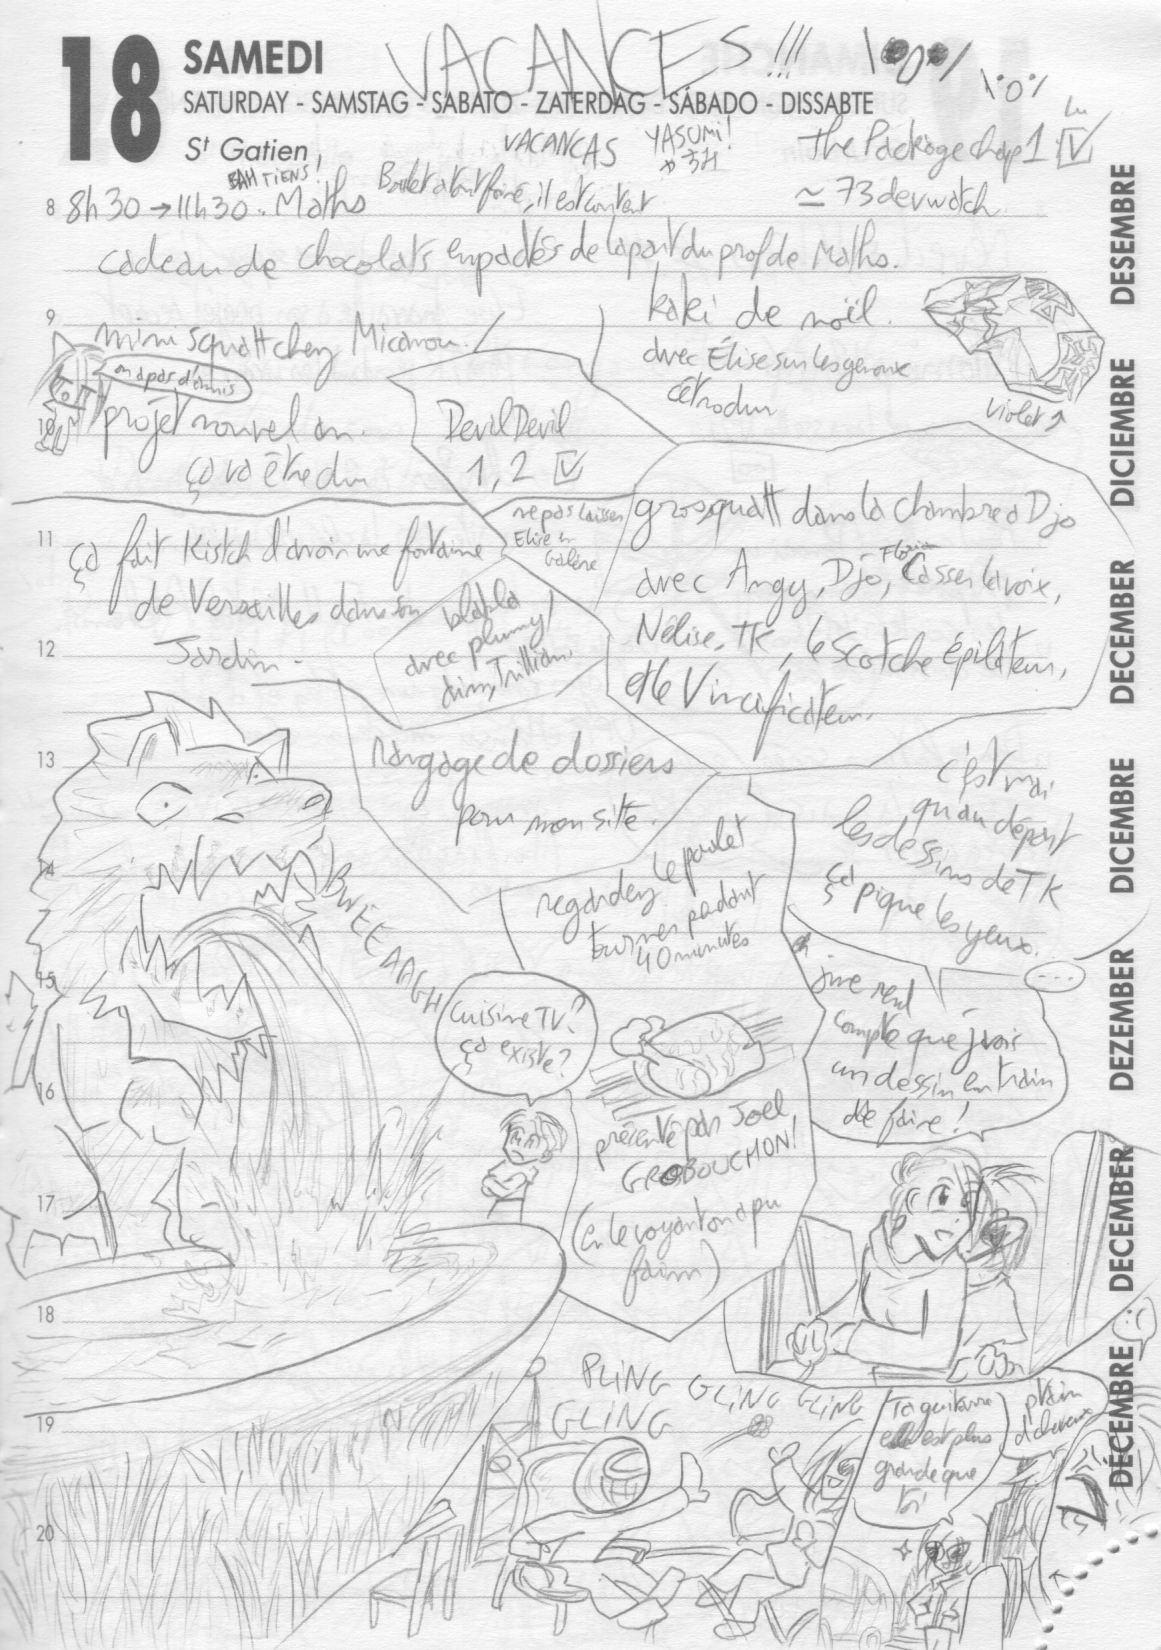 18 SAMEDI
VACANCES !!!
\•0•/
\·0·/
SATURDAY - SAMSTAG - SABATO - ZATERDAG - SÁBADO - DISSABTE
St Gatien,
BAH TIENS!
VACANCAS
YASUMI!
Lu
The Package chap 1
8
8h30 → 11h30. Maths
il est content
≃ 73 devwatch
cadeau de chocolats empactés de la part du prof de Maths.
9
mini squatt chez Micanou.
kaki de noël.
avec Élise sur les genoux
cétrodur
violet
on a pas d'amis
10
projet nouvel an.
ça va être dur
Devil Devil
1, 2
ne pas laisser
Elise en
Galère
gros squatt dans la chambre a Djo
avec Angy, Djo, Casser la voix,
Nélise, TK, le Scotche épilateur,
et le Vincificateur.
11
ça fait Kistch d'avoir une fontaine
de Versailles dans son
Jardin.
12
blabla
avec plumy/
Trillian.
13
rangage de dossiers
pour mon site.
c'est vrai
qu'au départ
les dessins de TK
ça pique les yeux.
...
14
BWEEAAGH
regardez le poulet
tourner pendant
40 minutes
15
Cuisine TV?
ça existe?
j'me rend
compte que j'avais
un dessin en train
de faire!
16
présenté par Joel
GROBOUCHON!
17
(en le voyant on a pu
faim)
18
PLING GLING GLING
GLING
19
Ta guitare
elle est plus
grande que
toi
plein
d'cheveux
20
DESEMBRE
DICIEMBRE
DECEMBER
DICEMBRE
DEZEMBER
DECEMBER
DECEMBRE